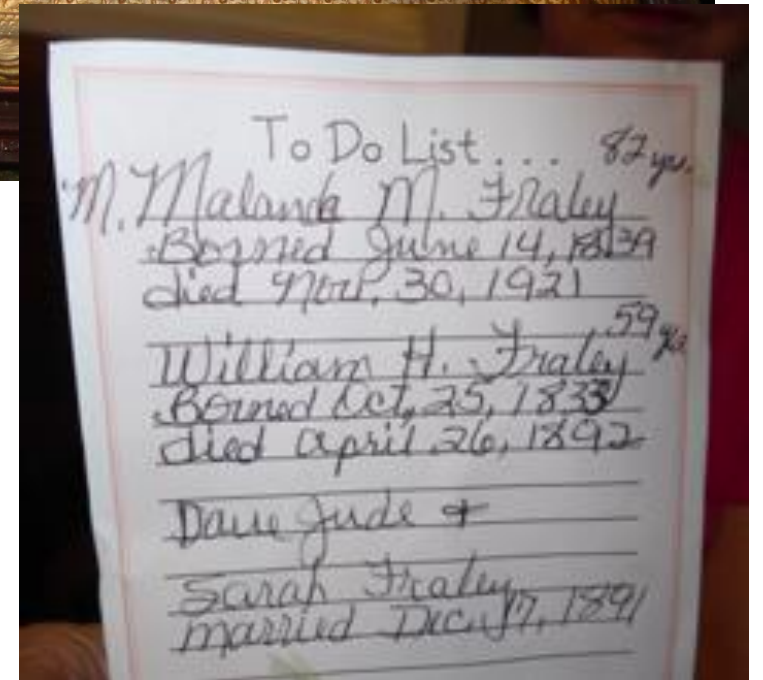 To Do List... 82 yrs.
M. Malanda M. Fraley
Borned June 14, 1839
died Nov. 30, 1921
59 yrs
William H. Fraley
Borned Oct, 25, 1833
died april 26, 1892
Dave Jude +
Sarah Fraley
married Dec. 17, 1891